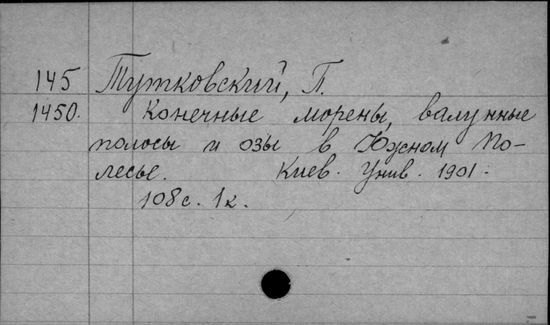 145 Тутковский, П.
1450. Конечные морены, валунные
полосы и озы в Южном По-
лесье. Киев. Унив. 1901.
108 с. 1 к.